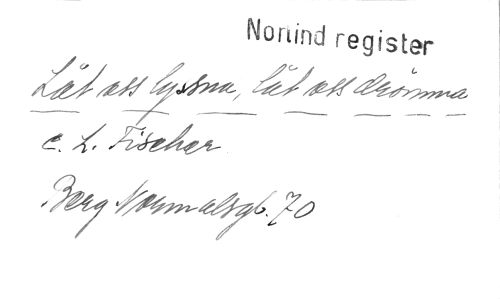 Nortind register
Låt oss lyssna, låt oss drömma
C. L. Fischer
Berg Normalsgb. 70